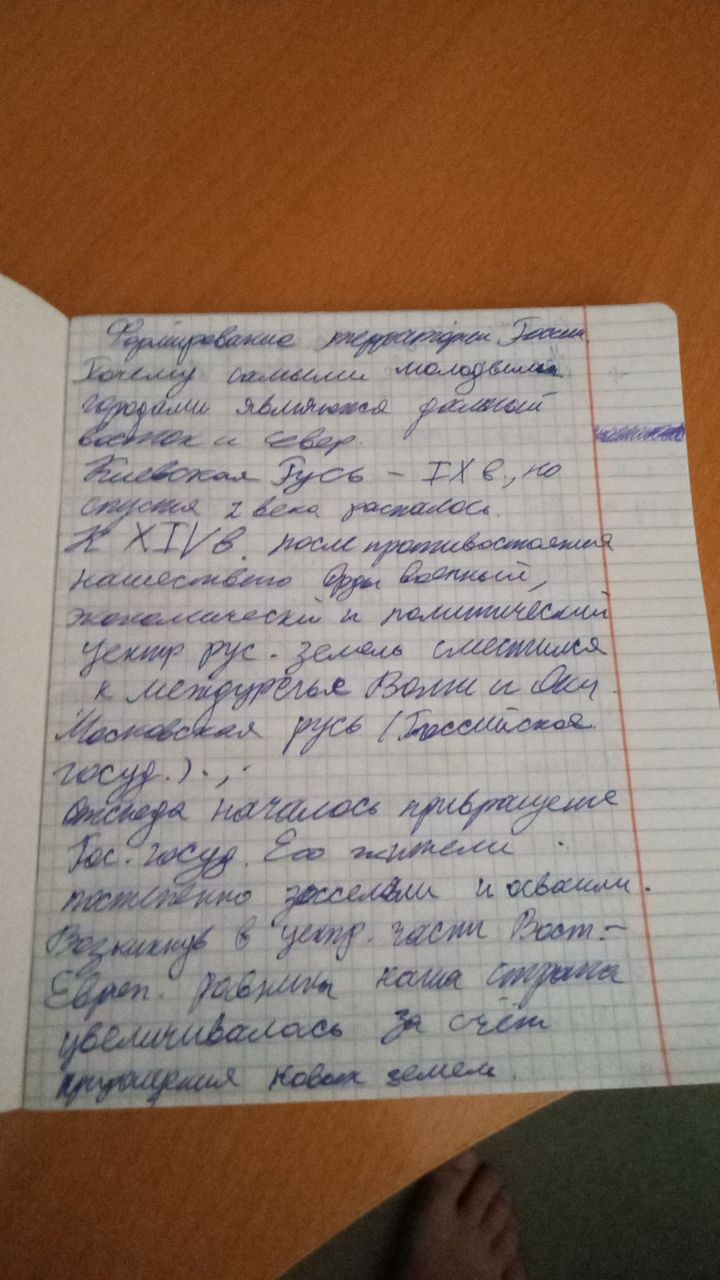 Формирование территории России.
Почему самыми молодыми
городами являются дальний
восток и север.
Киевская Русь – IX в., но
спустя 2 века распалось.
К XIV в. после противостояния
нашествию Орды военный,
экономический и политический
центр рус. земель сместился
к междуречье Волги и Оки.
Московская русь (Российское
госуд.).,
отсюда началось привращение
Рос. госуд. Его жители
постепенно засселяли и осваили.
Возникнув в центр. части Вост.-
Европ. равнины наша страна
увеличивалась за счёт
приращения новых земель.